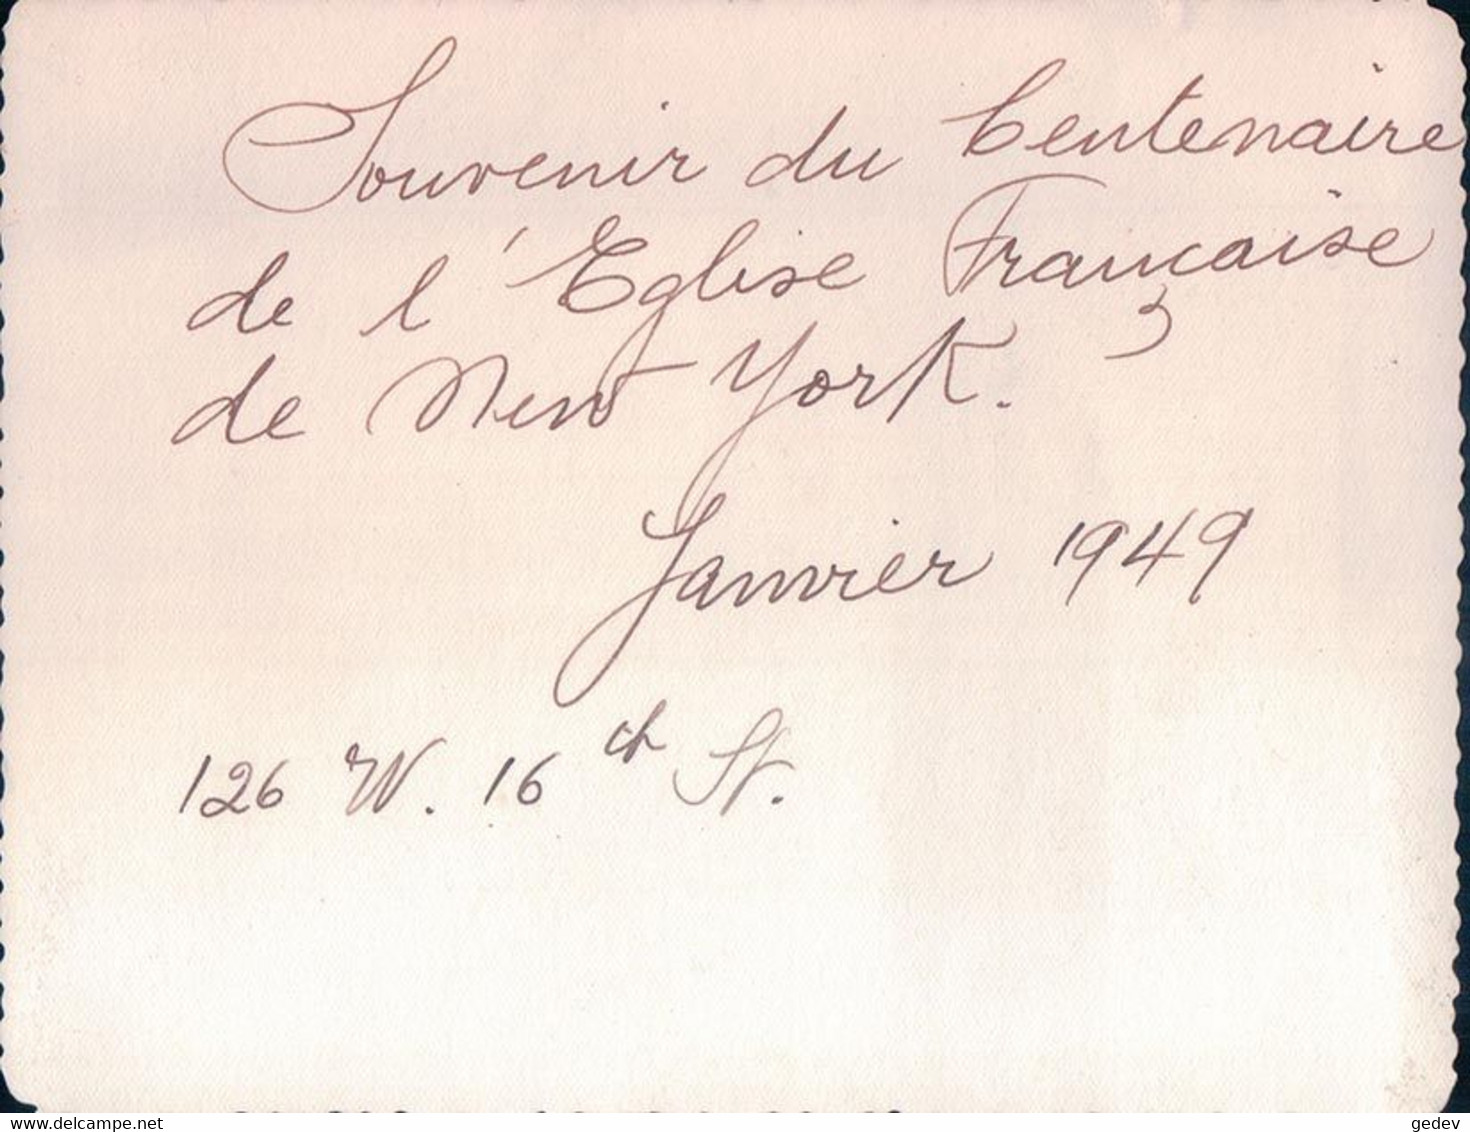 Souvenir du Centenaire
de l'Eglise Française
de New York.
Janvier 1949
126 W. 16th St.
gedev